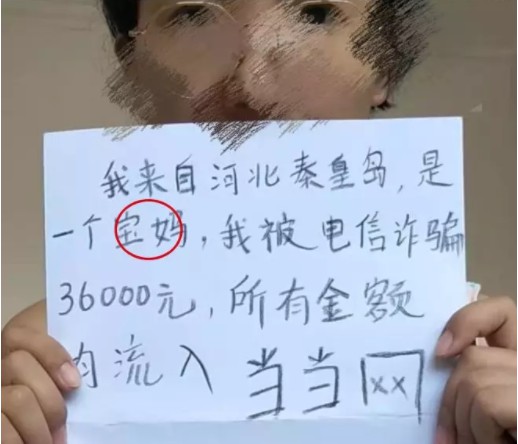 我来自河北秦皇岛,是
一个宝妈,我被电信诈骗
36000元,所有金额
均流入 当当网